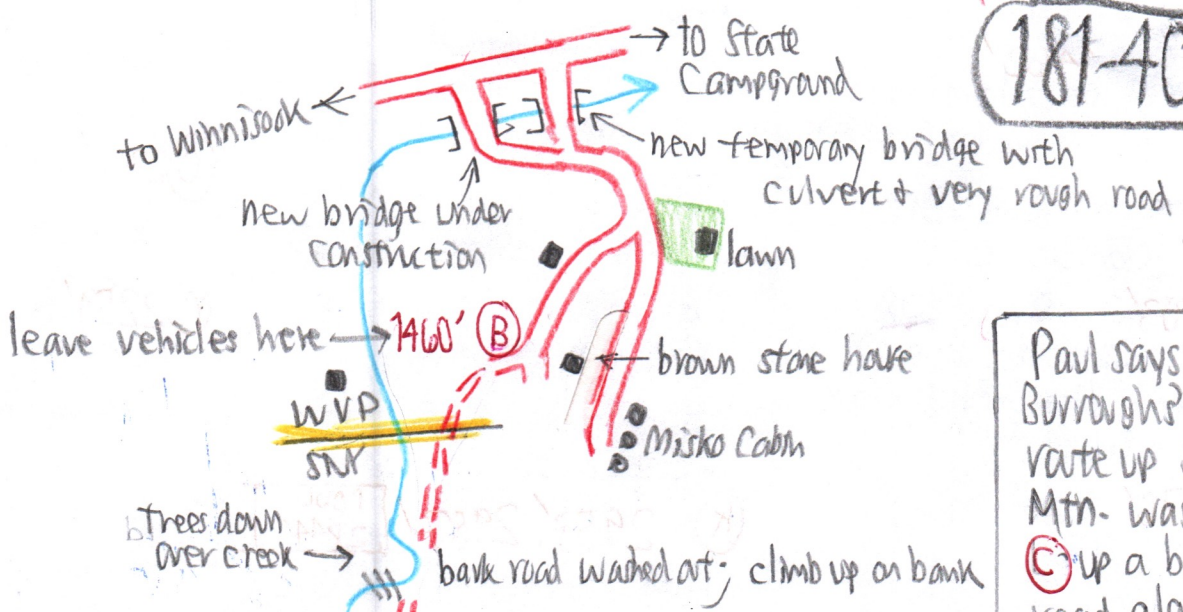 181-40
to State
Campground
to Winnisook
new temporary bridge with
culvert & very rough road
new bridge under
constrnction
lawn
leave vehicles here
1460' B
brown stone house
WVP
SNY
Misko Cabin
Trees down
over creek
bank road washed out; climb up on bank
Paul says
Burroughs'
route up
Mtn. was
C up a b
road alo